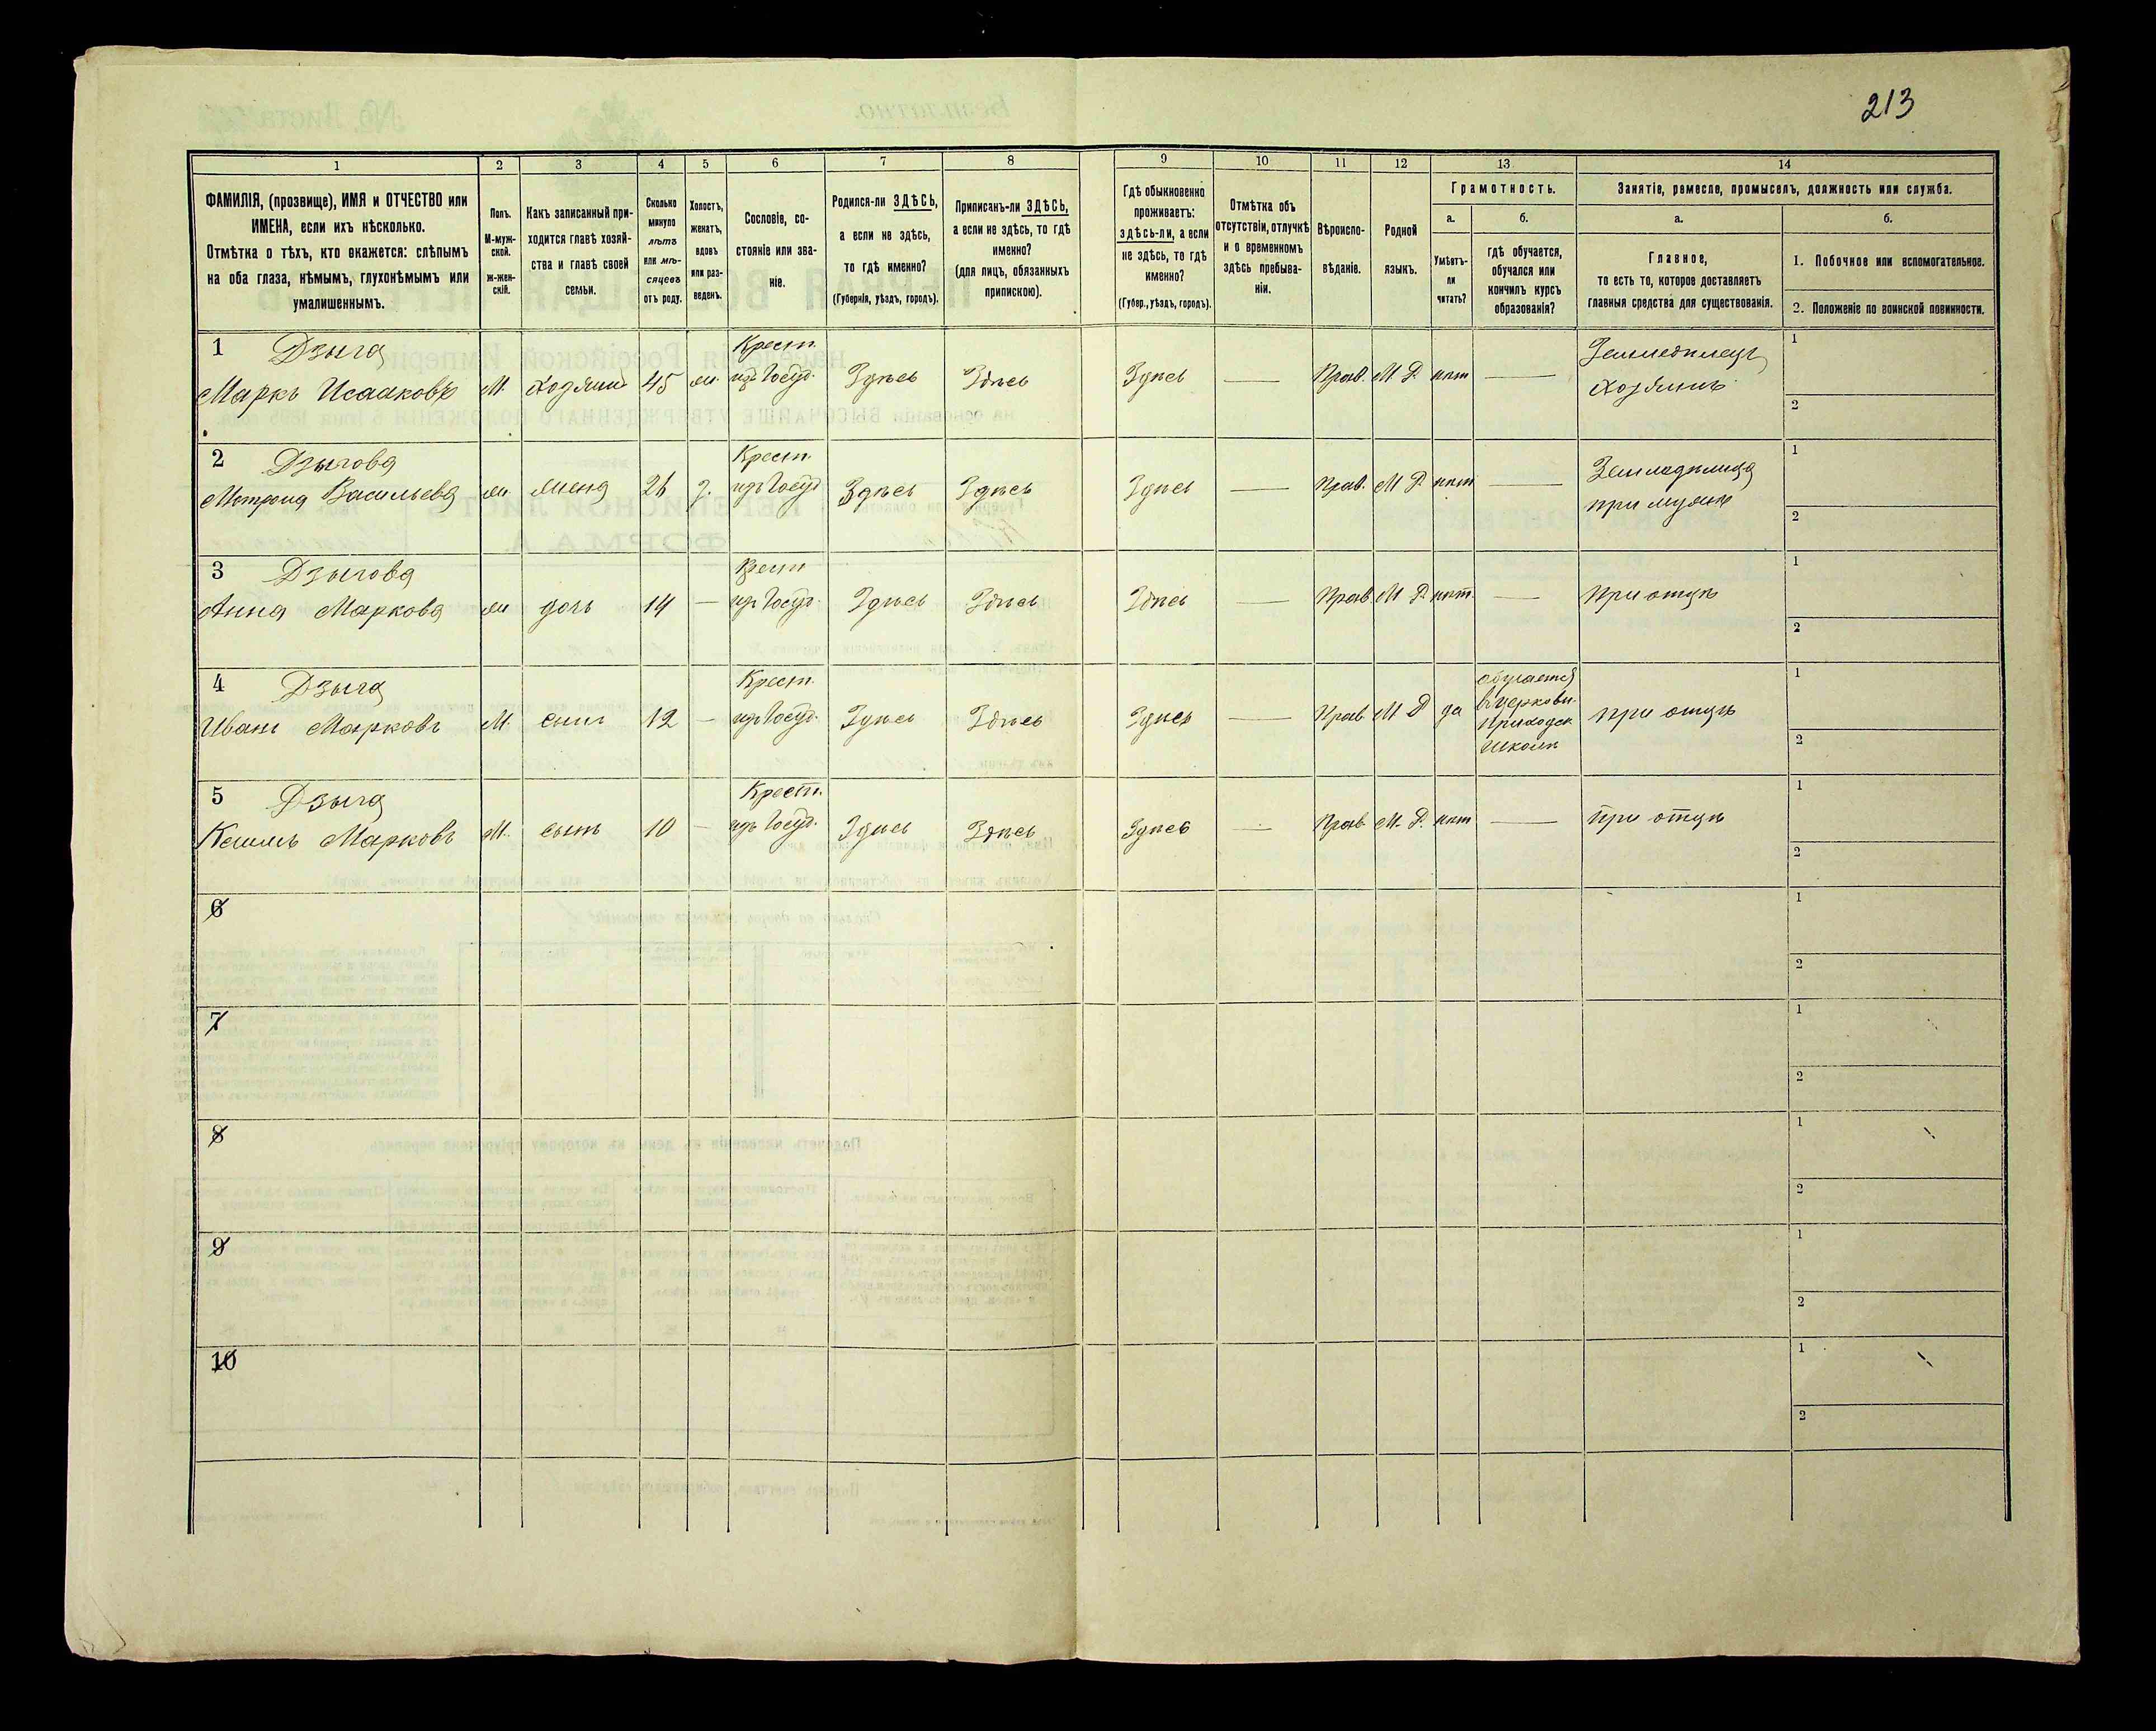 213
1 2 3 4 5 6 7 8 9 10 11 12 13 14
ФАМИЛІЯ, (прозвище), ИМЯ и ОТЧЕСТВО или
ИМЕНА, если ихъ нѣсколько.
Отмѣтка о тѣхъ, кто окажется: слѣпымъ
на оба глаза, нѣмымъ, глухонѣмымъ или
умалишеннымъ.
Полъ.
М-муж-
ской.
ж-жен-
скій.
Какъ записанный при-
ходится главѣ хозяй-
ства и главѣ своей
семьи.
Сколько
минуло
лѣтъ
или мѣ-
сяцевъ
отъ роду.
Холостъ,
женатъ,
вдовъ
или раз-
веденъ.
Сословіе, со-
стояніе или зва-
ніе.
Родился-ли ЗДѢСЬ,
а если не здѣсь,
то гдѣ именно?
(Губернія, уѣздъ, городъ).
Приписанъ-ли ЗДѢСЬ,
а если не здѣсь, то гдѣ
именно?
(для лицъ, обязанныхъ
припискою).
Гдѣ обыкновенно
проживаетъ:
здѣсь-ли, а если
не здѣсь, то гдѣ
именно?
(Губер., уѣздъ, городъ).
Отмѣтка объ
отсутствіи, отлучкѣ
и о временномъ
здѣсь пребыва-
ніи.
Вѣроиспо-
вѣданіе.
Родной
языкъ.
Грамотность.
а.
Умѣетъ-
ли
читать?
б.
гдѣ обучается,
обучался или
кончилъ курсъ
образованія?
Занятіе, ремесло, промыселъ, должность или служба.
а.
Главное,
то есть то, которое доставляетъ
главныя средства для существованія.
б.
1. Побочное или вспомогательное.
2. Положеніе по воинской повинности.
1 Дзыга Крест. Земледѣлецъ 1
Маркъ Исааковъ М. хозяинъ 45 ж. изъ Госуд. Здѣсь Здѣсь Здѣсь — Прав. М Р. нѣт — хозяинъ
2
2 Дзыгова Крест. Земледѣлица 1
Матрона Васильева ж жена 26 з. изъ Госуд. Здѣсь Здѣсь Здѣсь — Прав. М Р. нѣт — при мужѣ
2
3 Дзыгова Крест 1
Анна Маркова ж дочь 14 — изъ Госуд. Здѣсь Здѣсь Здѣсь — Прав. М Р. нѣт. — при отцѣ
2
4 Дзыга Крест. обучается 1
Иванъ Марковъ М. сынъ 12 — изъ Госуд. Здѣсь Здѣсь Здѣсь — Прав М Р да въ церковн. при отцѣ
приходск
школѣ 2
5 Дзыга Крест. 1
Марковъ М. сынъ 10 — изъ Госуд. Здѣсь Здѣсь Здѣсь — Прав. М. Р. нѣт — при отцѣ
2
6 1
2
7 1
2
8 1
2
9 1
2
10 1
2